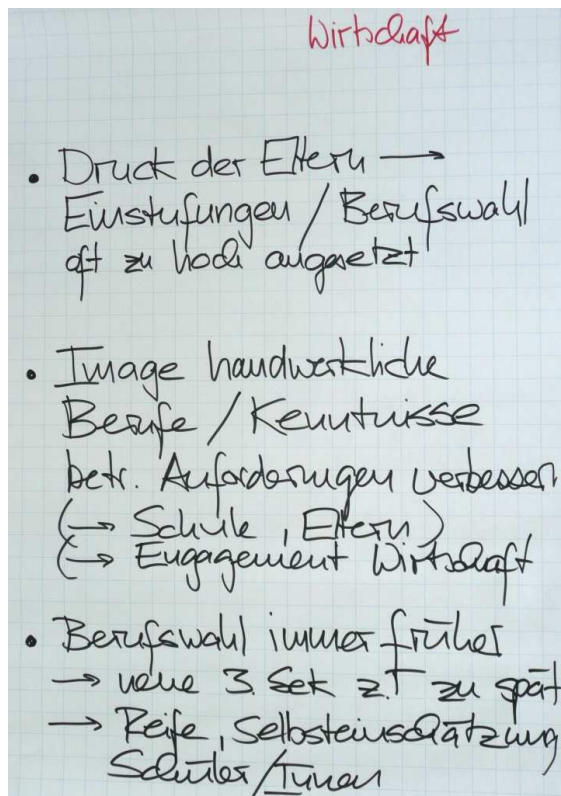 Wirtschaft
• Druck der Eltern →
Einstufungen / Berufswahl
oft zu hoch angesetzt
• Image handwerkliche
Berufe / Kenntnisse
betr. Anforderungen verbessern
(→ Schule, Eltern)
(→ Engagement Wirtschaft
• Berufswahl immer früher
→ neue 3. Sek z.T zu spät
→ Reife, Selbsteinschätzung
Schüler/Innen